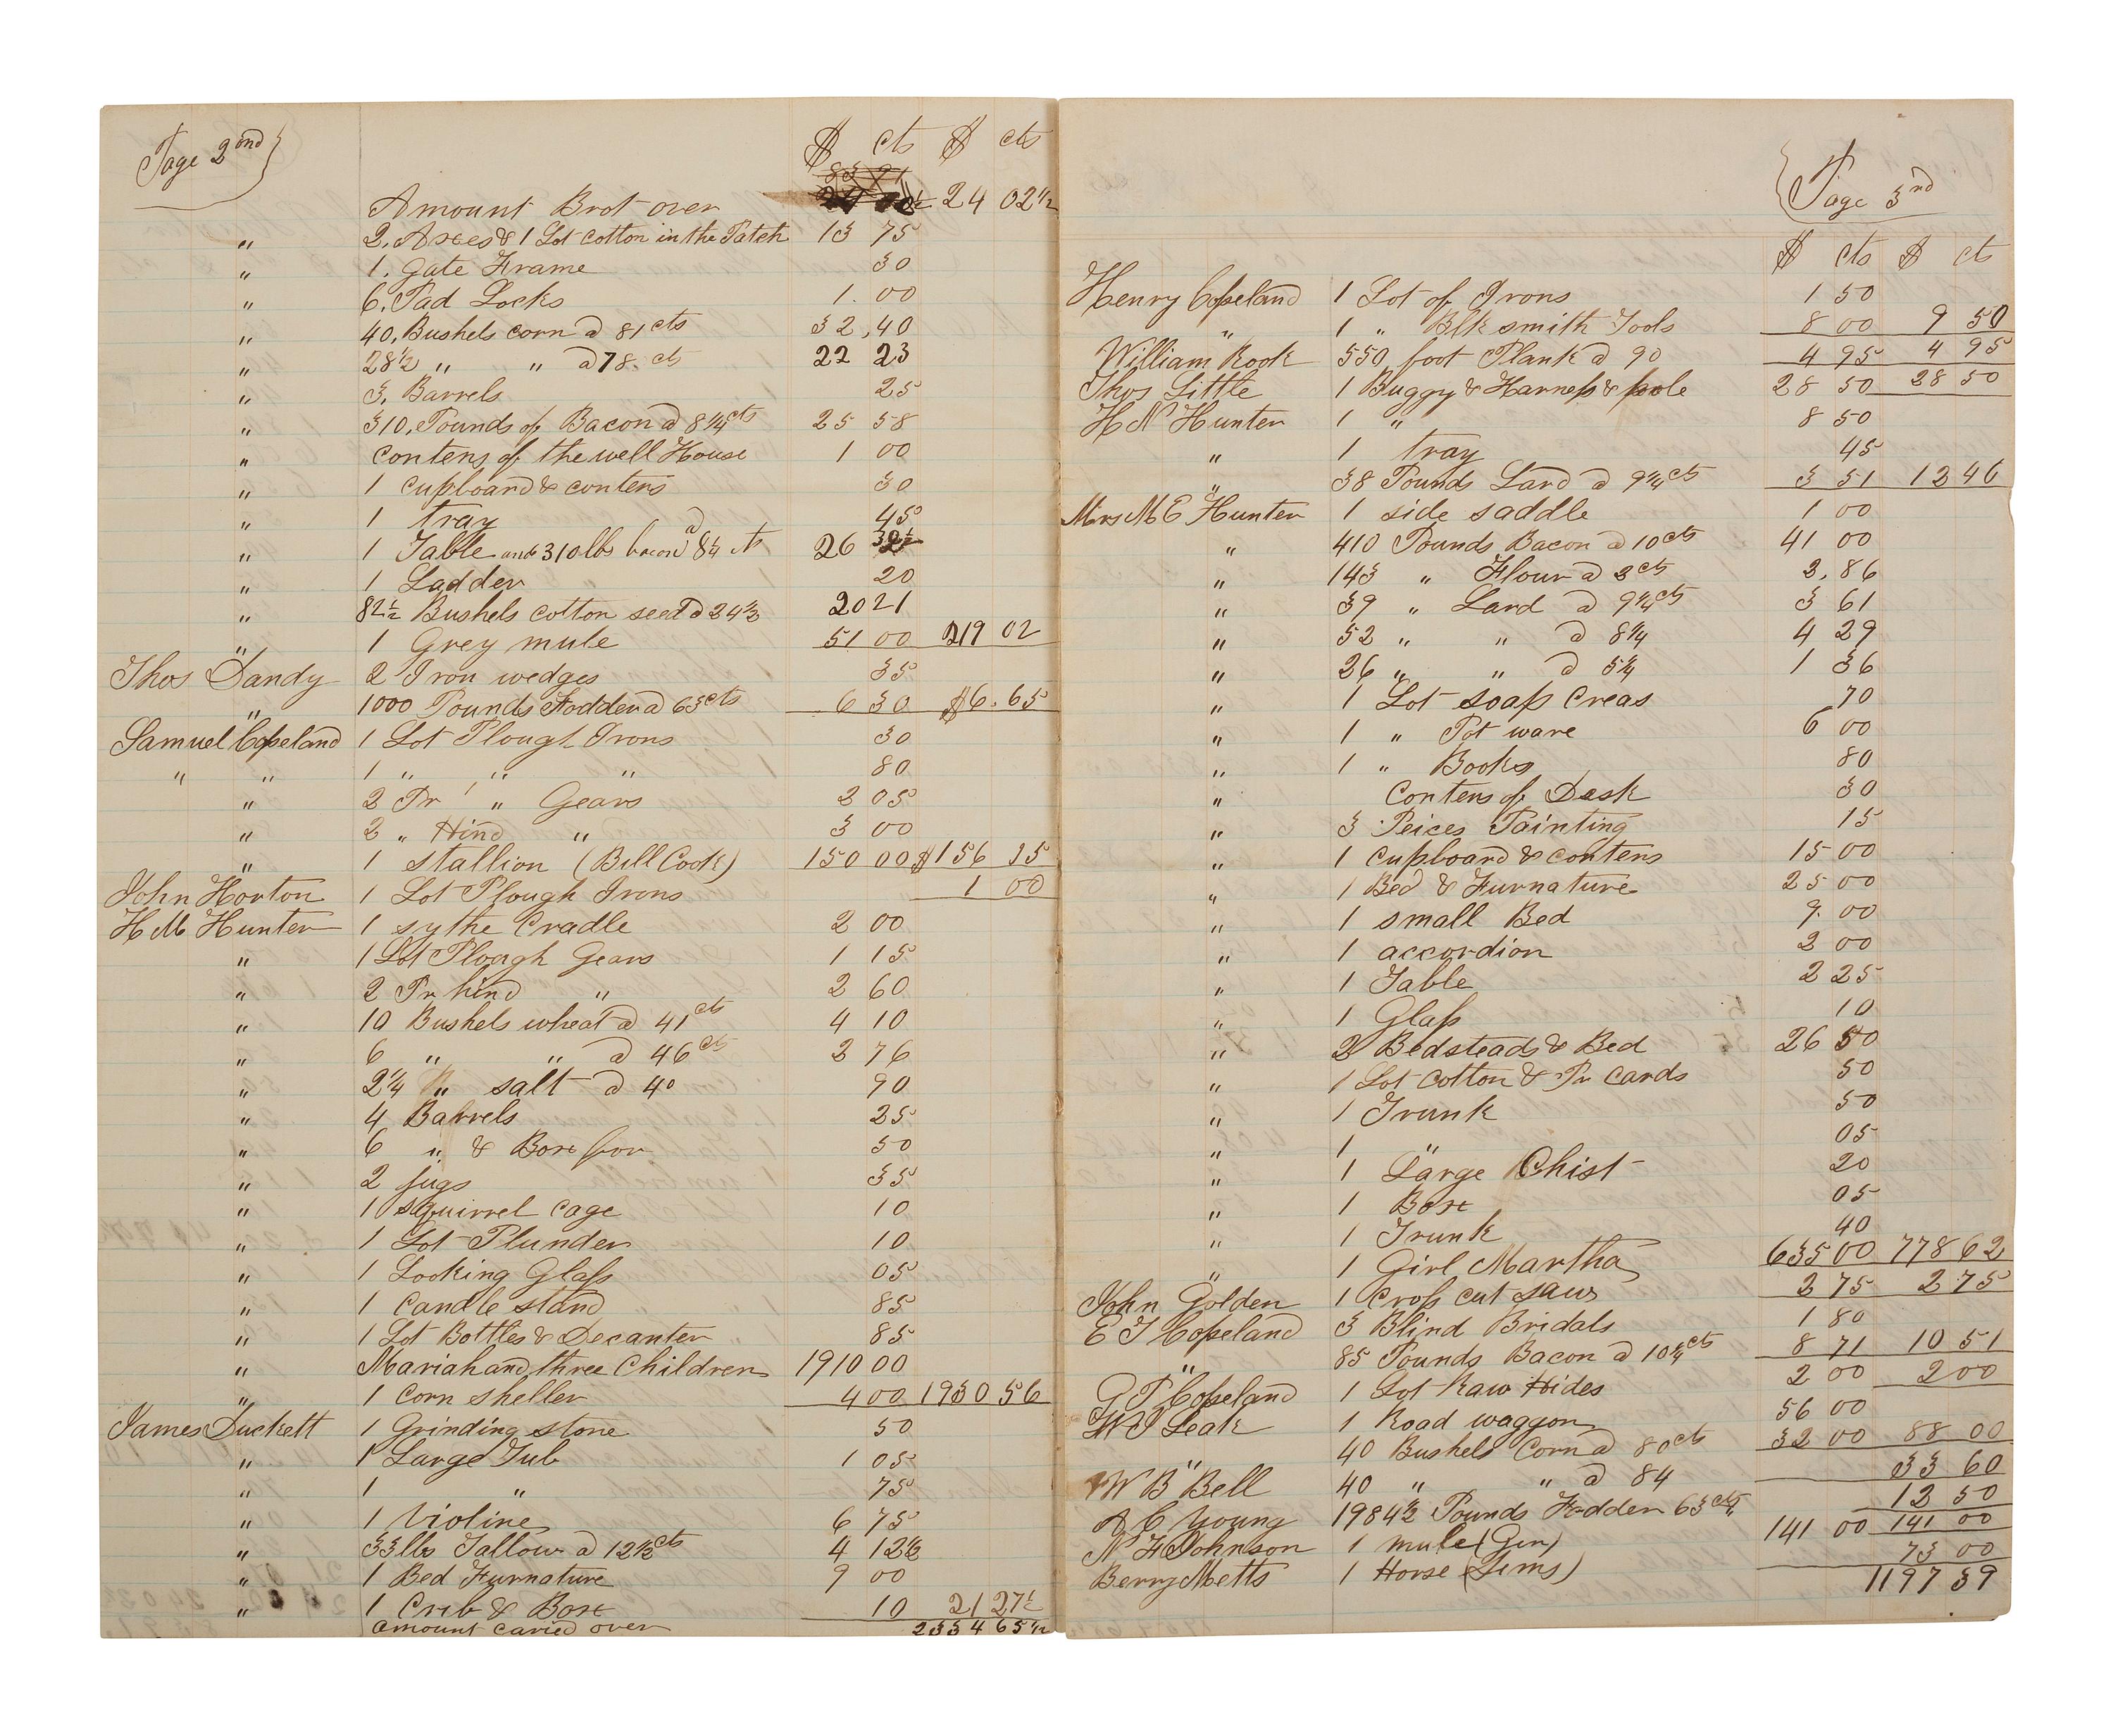 Page 2nd
$ cts $ cts
Amount Brot over 24 02 1/2
" 2. Axes & 1 Lot Cotton in the Patch 13 75
" 1. Gate Frame 30
" 6. Pad Locks 1.00
" 40. Bushels corn @ 81 cts 32,40
" 28 1/2 " " @ 78. ct 22 23
" 3. Barrels 25
" 310. Pounds of Bacon @ 8 1/4 cts 25 58
" Contens of the well House 1 00
" 1 Cupboard & contens 30
" 1 tray 45
" 1 Table and 310 lbs bacon @ 8 1/4 cts 26 32 1/2
" 1 Ladder 20
" 82 1/2 Bushels cotton seed @ 24 1/2 20 21
" 1 Grey mule 51 00 219 02
Thos Dandy 2 Iron wedges 35
" 1000 Pounds Fodder @ 63 cts 6 30 $6.65
Samuel Copeland 1 Lot Plough Irons 30
" " 1 " " " 80
" 2 Pr " Gears 2 05
" 2 " Hind " 3 00
" 1 Stallion (Bill Cook) 150 00 $156 15
John Horton 1 Lot Plough Irons 1 00
H M Hunter 1 sythe Cradle 2 00
" 1 Lot Plough Gears 1 15
" 2 Pr hind " 2 60
" 10 Bushels wheat @ 41 cts 4 10
" 6 " " @ 46 cts 2 76
" 2 1/4 " salt @ 40 90
" 4 Barrels 25
" 6 " & Box 50
" 2 jugs 35
" 1 squirrel cage 10
" 1 Lot Plunder 10
" 1 Looking Glass 05
" 1 Candle stand 85
" 1 Lot Bottles & Decanter 85
" Mariah and three Children 1910 00
" 1 Corn sheller 4 00 1930 56
James Duckett 1 Grinding stone 50
" 1 Large Tub 1 05
" 1 " 75
" 1 Violine 6 75
" 33 lbs Tallow @ 12 1/2 cts 4 12 1/2
" 1 Bed Furnature 9 00
" 1 Crib & Box 10 21 27 1/2
Amount caried over 2334 65 1/2
Page 3rd
$ cts $ cts
Henry Copeland 1 Lot of Irons 1 50
" 1 " Blk smith Tools 8 00 9 50
William Rook 550, foot Plank @ 90 4 95 4 95
Thos Little 1 Buggy & Harness & pole 28 50 28 50
H N Hunter 1 " 8 50
" 1 tray 45
" 38 Pounds Lard @ 9 1/4 cts 3 51 12 46
Mrs M E Hunter 1 side saddle 1 00
" 410 Pounds Bacon @ 10 cts 41 00
" 143 " Flour @ 2 cts 2,86
" 39 " Lard @ 9 1/4 cts 3 61
" 52 " " @ 8 1/4 4 29
" 26 " " @ 5 1/4 1 36
" 1 Lot soap Creas 70
" 1 " Pot ware 6 00
" 1 " Books 80
" Contens of Desk 30
" 3 Peices Painting 15
" 1 Cupboard & contens 15 00
" 1 Bed & Furnature 25 00
" 1 small Bed 9.00
" 1 accordion 2 00
" 1 Table 2 25
" 1 Glass 10
" 2 Bedsteads & Bed 26 50
" 1 Lot Cotton & Pr Cards 50
" 1 Trunk 50
" 1 " 05
" 1 Large Chist 20
" 1 Box 05
" 1 Trunk 40
" 1 Girl Martha 635 00 778 62
John Golden 1 Cross cut saw 2 75 2 75
E T Copeland 3 Blind Bridals 1 80
" 85 Pounds Bacon @ 10 1/4 cts 8 71 10 51
G P Copeland 1 Lot Raw Hides 2 00 2 00
W J Leak 1 Road waggon 56 00
" 40 Bushels Corn @ 80 cts 32 00 88 00
W B Bell 40 " " @ 84 33 60
A C Young 1984 1/2 Pounds Fodder 63 cts 12 50
N H Johnson 1 mule (Gin) 141 00 141 00
Berry Metts 1 Horse (Sims) 73 00
1197 39